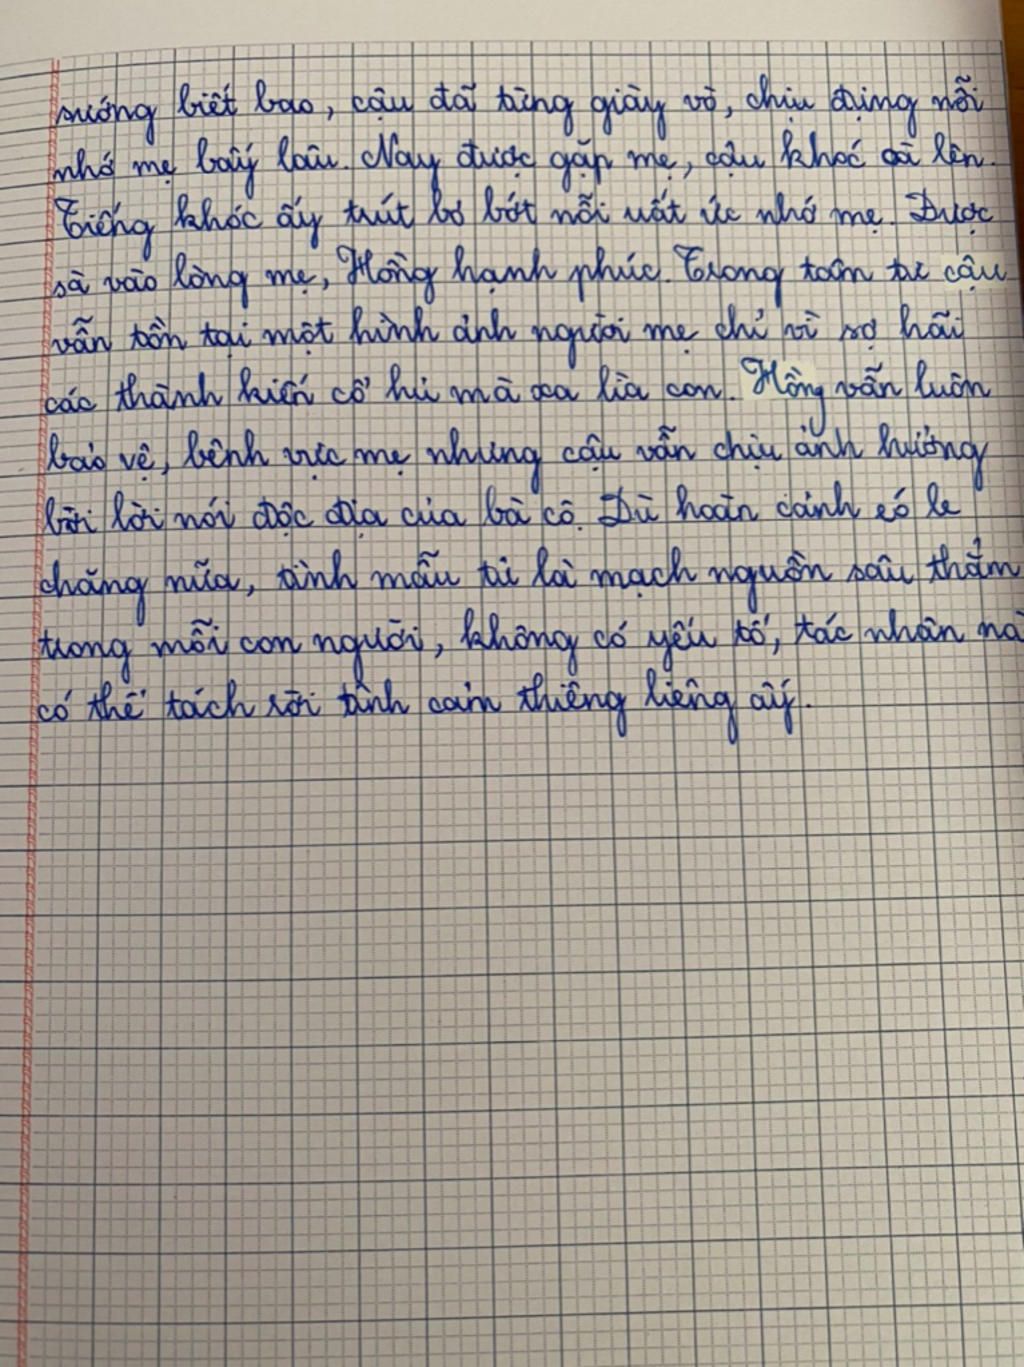 sướng biết bao, cậu đã từng giày vò, chịu đựng nỗi
nhớ mẹ bấy lâu. Nay được gặp mẹ, cậu khóc oà lên.
Tiếng khóc ấy trút bỏ bớt nỗi uất ức nhớ mẹ. Được
sà vào lòng mẹ, Hồng hạnh phúc. Trong tâm tư cậu
vẫn tồn tại một hình ảnh người mẹ chỉ vì sợ hãi
các thành kiến cổ hủ mà xa lìa con. Hồng vẫn luôn
bảo vệ, bênh vực mẹ nhưng cậu vẫn chịu ảnh hưởng
bởi lời nói độc địa của bà cô. Dù hoàn cảnh éo le
chăng nữa, tình mẫu tử là mạch nguồn sâu thẳm
trong mỗi con người, không có yếu tố, tác nhân nà
có thể tách rời tình cảm thiêng liêng ấy.